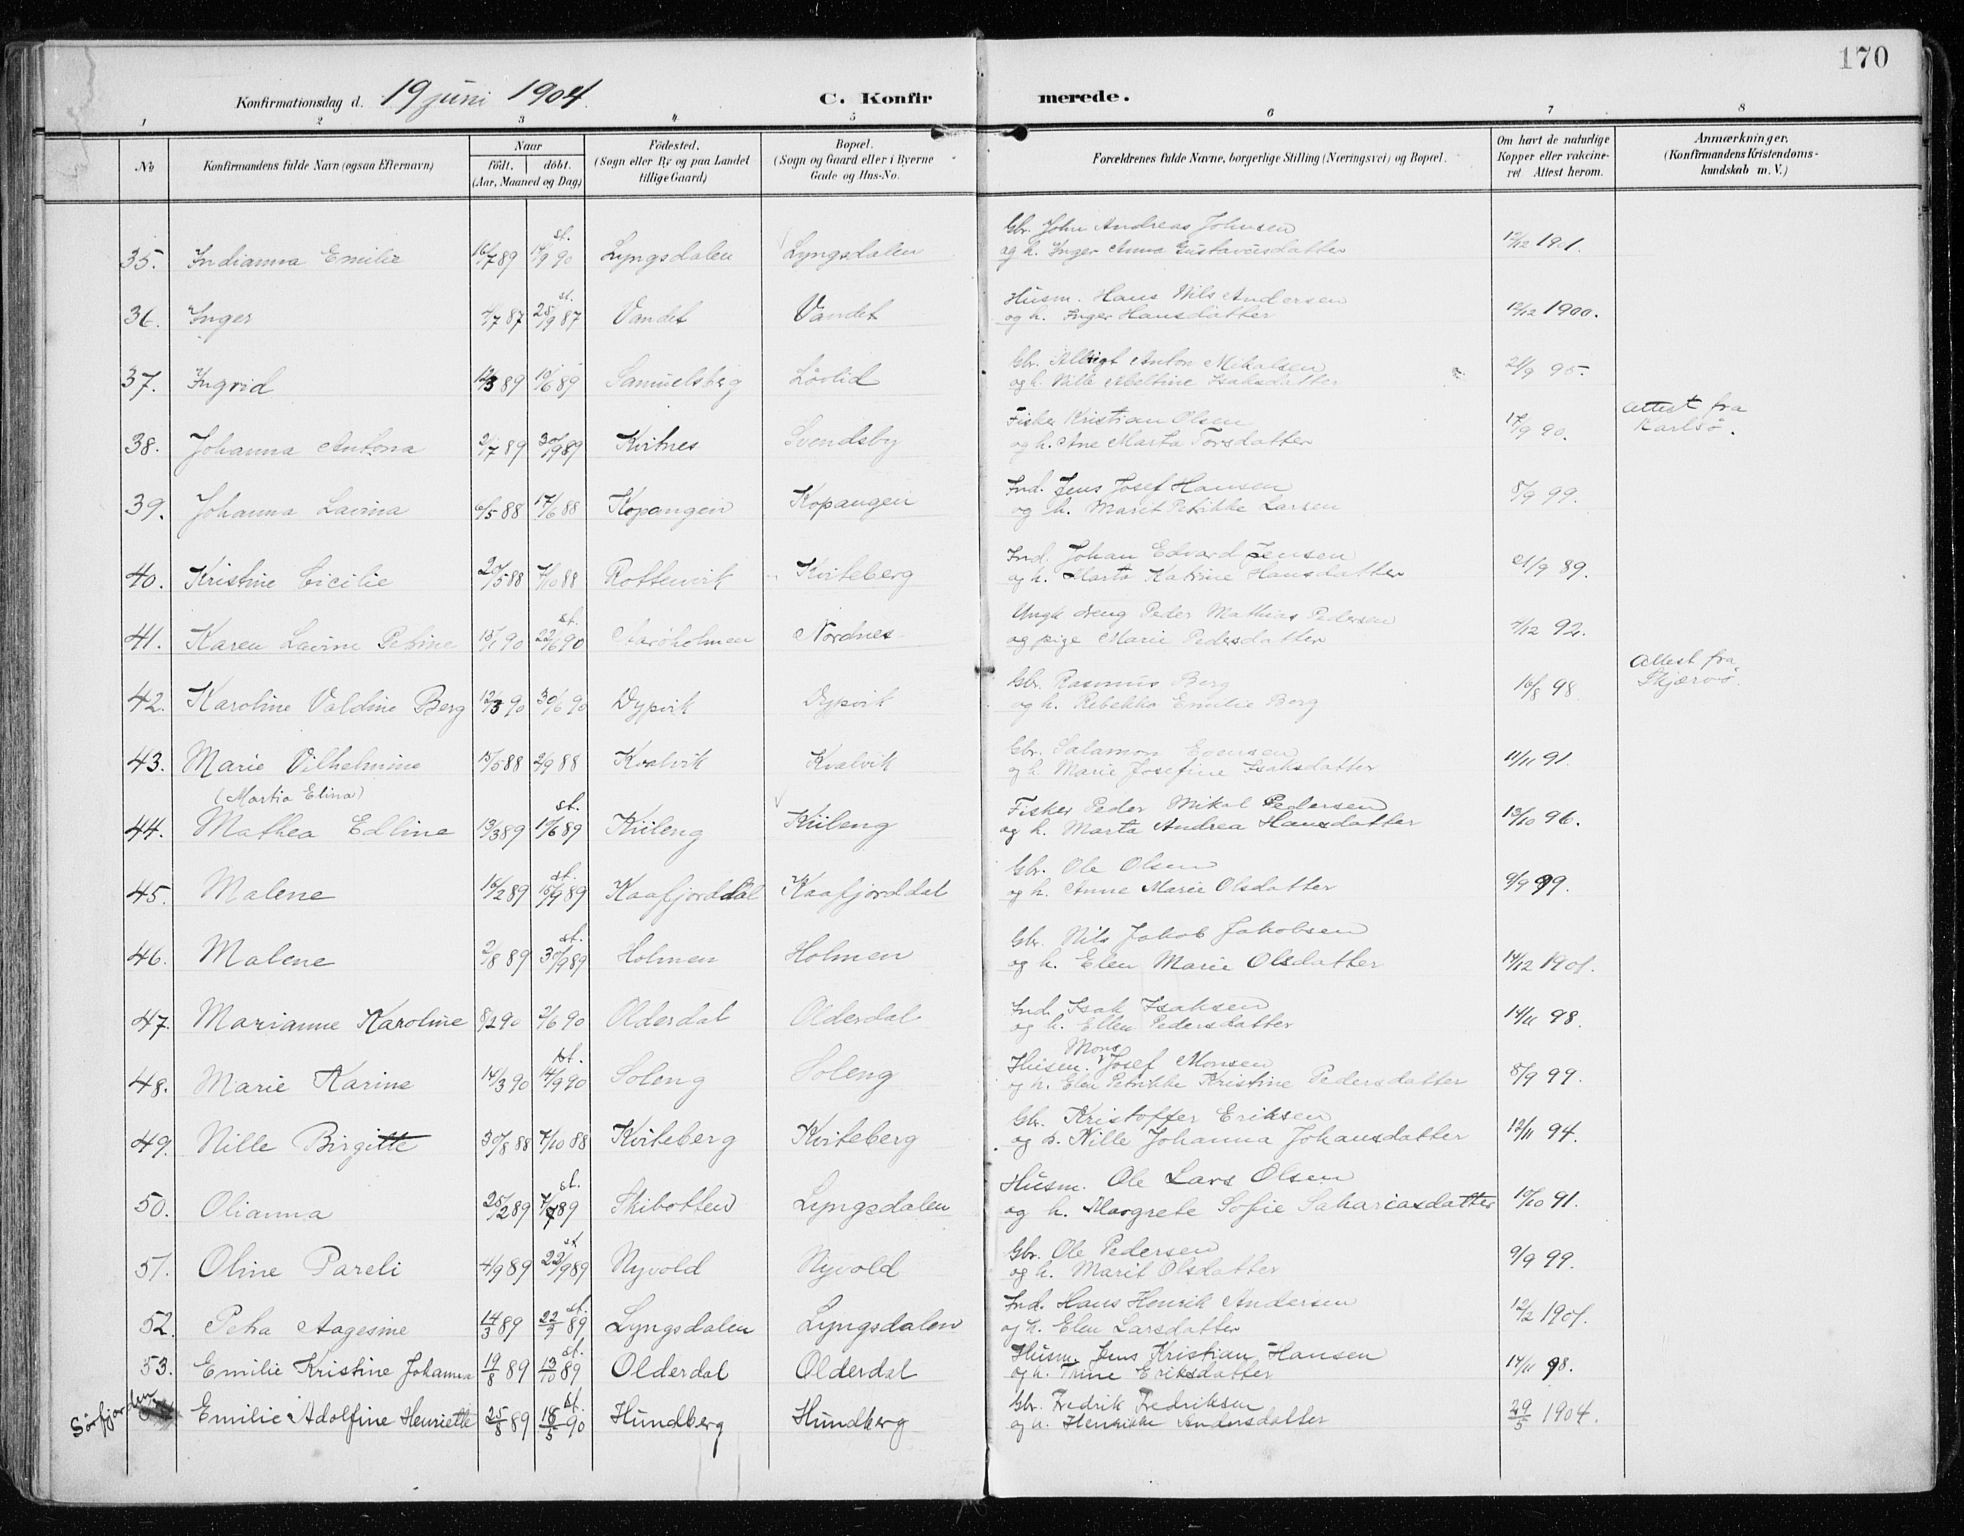 170
Konfirmationsdag d. 19 juni 1904. C. Konfirmerede.
1 2 3 4 5 6 7 8
No Konfirmandens fulde Navn (ogsaa Efternavn) Naar født, døbt. (Aar, Maaned og Dag) Fødested. (Sogn eller By og paa Landet tillige Gaard) Bopæl. (Sogn og Gaard eller i Byerne Gade og Hus-No. Forældrenes fulde Navne, borgerlige Stilling (Næringsvei) og Bopæl. Om havt de naturlige Kopper eller vakcineret Attest herom. Anmærkninger, (Konfirmandens Kristendomskundskab m. V.)
35. Indianna Emilie 16/7 89 st. 90 Lyngsdalen Lyngsdalen Gbr. John Andreas Johnsen og h. Inger Anna Gustavusdatter 12/12 1901.
36. Inger 87 st. 28/9 87 Vandet Vandet Husm. Hans Nils Andersen og h. Inger Hansdatter 12/12 1900.
37. Ingrid 12/3 89 10/6 89 Samuelsberg Løvlid Gbr. Albrigt Anton Mikalsen og h. Nille Abeltine Isaksdatter 21/9 95.
38. Johanna Antona 21/7 89 30/9 89 Kvitnes Svendsby Fisker Kristian Olsen og h. Ane Marta Torsdatter 17/9 90. Attest fra Karlsø.
39. Johanna Lavina 6/5 88 17/6 88 Kopangen Kopangen Ind. Jens Josef Hansen og h. Marit Petrikke Larsen 8/9 99.
40. Kristine Cicilie 20/5 88 7/10 88 Rottenvik Kviteberg Ind. Johan Edvard Jensen og h. Marta Katrine Hansdatter 21/9 89.
41. Karen Lavine Petrine 15/1 90 st. 22/6 90 Aarøholmen Nordnes Ungk dreng Peder Mathias Pedersen og pige Marie Pedersdatter 92.
42. Karoline Valdine Berg 12/3 90 30/6 90 Dypvik Dypvik Gbr. Rasmus Berg og h. Rebekka Emilie Berg 16/8 98. Attest fra Skjærvø.
43. Marie Vilhelmine 15/5 88 2/9 88 Kvalvik Kvalvik Gbr. Salamon Evensen og h. Marie Josefine Isaksdatter 11/11 91.
(Martia Elina)
44. Mathea Edline 13/3 89 st. 10/6 89 Kiileng Kiileng Fisker Peder Mikal Pedersen og h. Marta Andrea Hansdatter 13/10 96.
45. Malene 16/2 89 st. 15/9 89 Kaafjorddal Kaafjorddal Gbr. Ole Olsen og h. Anne Marie Olsdatter 9/9 99.
46. Malene 2/8 89 st. 30/9 89 Holmen Holmen Gbr. Nils Jakob Jakobsen og h. Elen Marie Olsdatter 14/12 1901.
47. Marianne Karoline 8/2 90 2/6 90 Olderdal Olderdal Ind. Isak Isaksen og h. Ellen Pedersdatter 14/11 98.
48. Marie Karine 14/3 90 st. 14/9 90 Soleng Soleng Husm. Mons Josef Monsen og h. Elen Petrikke Kristine Pedersdatter 8/9 99.
49. Nille Birgitte 30/8 88 7/10 88 Kviteberg Kviteberg Gbr. Kristoffer Eriksen og h. Nille Johanna Johansdatter 12/11 94.
50. Olianna 25/2 89 st. 7/7 89 Skibotten Lyngsdalen Husm. Ole Lars Olsen og h. Margrete Sofie Sahariasdatter 10/10 91.
51. Oline Pareli 4/9 89 st. 22/9 89 Nyvold Nyvold Gbr. Ole Pedersen og h. Marit Olsdatter 9/9 99.
52. Petra Aagesine 14/3 89 st. 22/9 89 Lyngsdalen Lyngsdalen Ind. Hans Henrik Andersen og h. Elen Larsdatter 12/2 1901.
53. Emilie Kristine Johanna 19/8 89 st. 13/10 89 Olderdal Olderdal Husm. Jens Kristian Hansen og h. Trine Eriksdatter 14/11 98.
Sørfjorden Emilie Adolfine Henriette 25/8 89 st. 18/5 90 Hundberg Hundberg Gbr. Fredrik Fredriksen og h. Henrikke Andersdatter 29/5 1904.